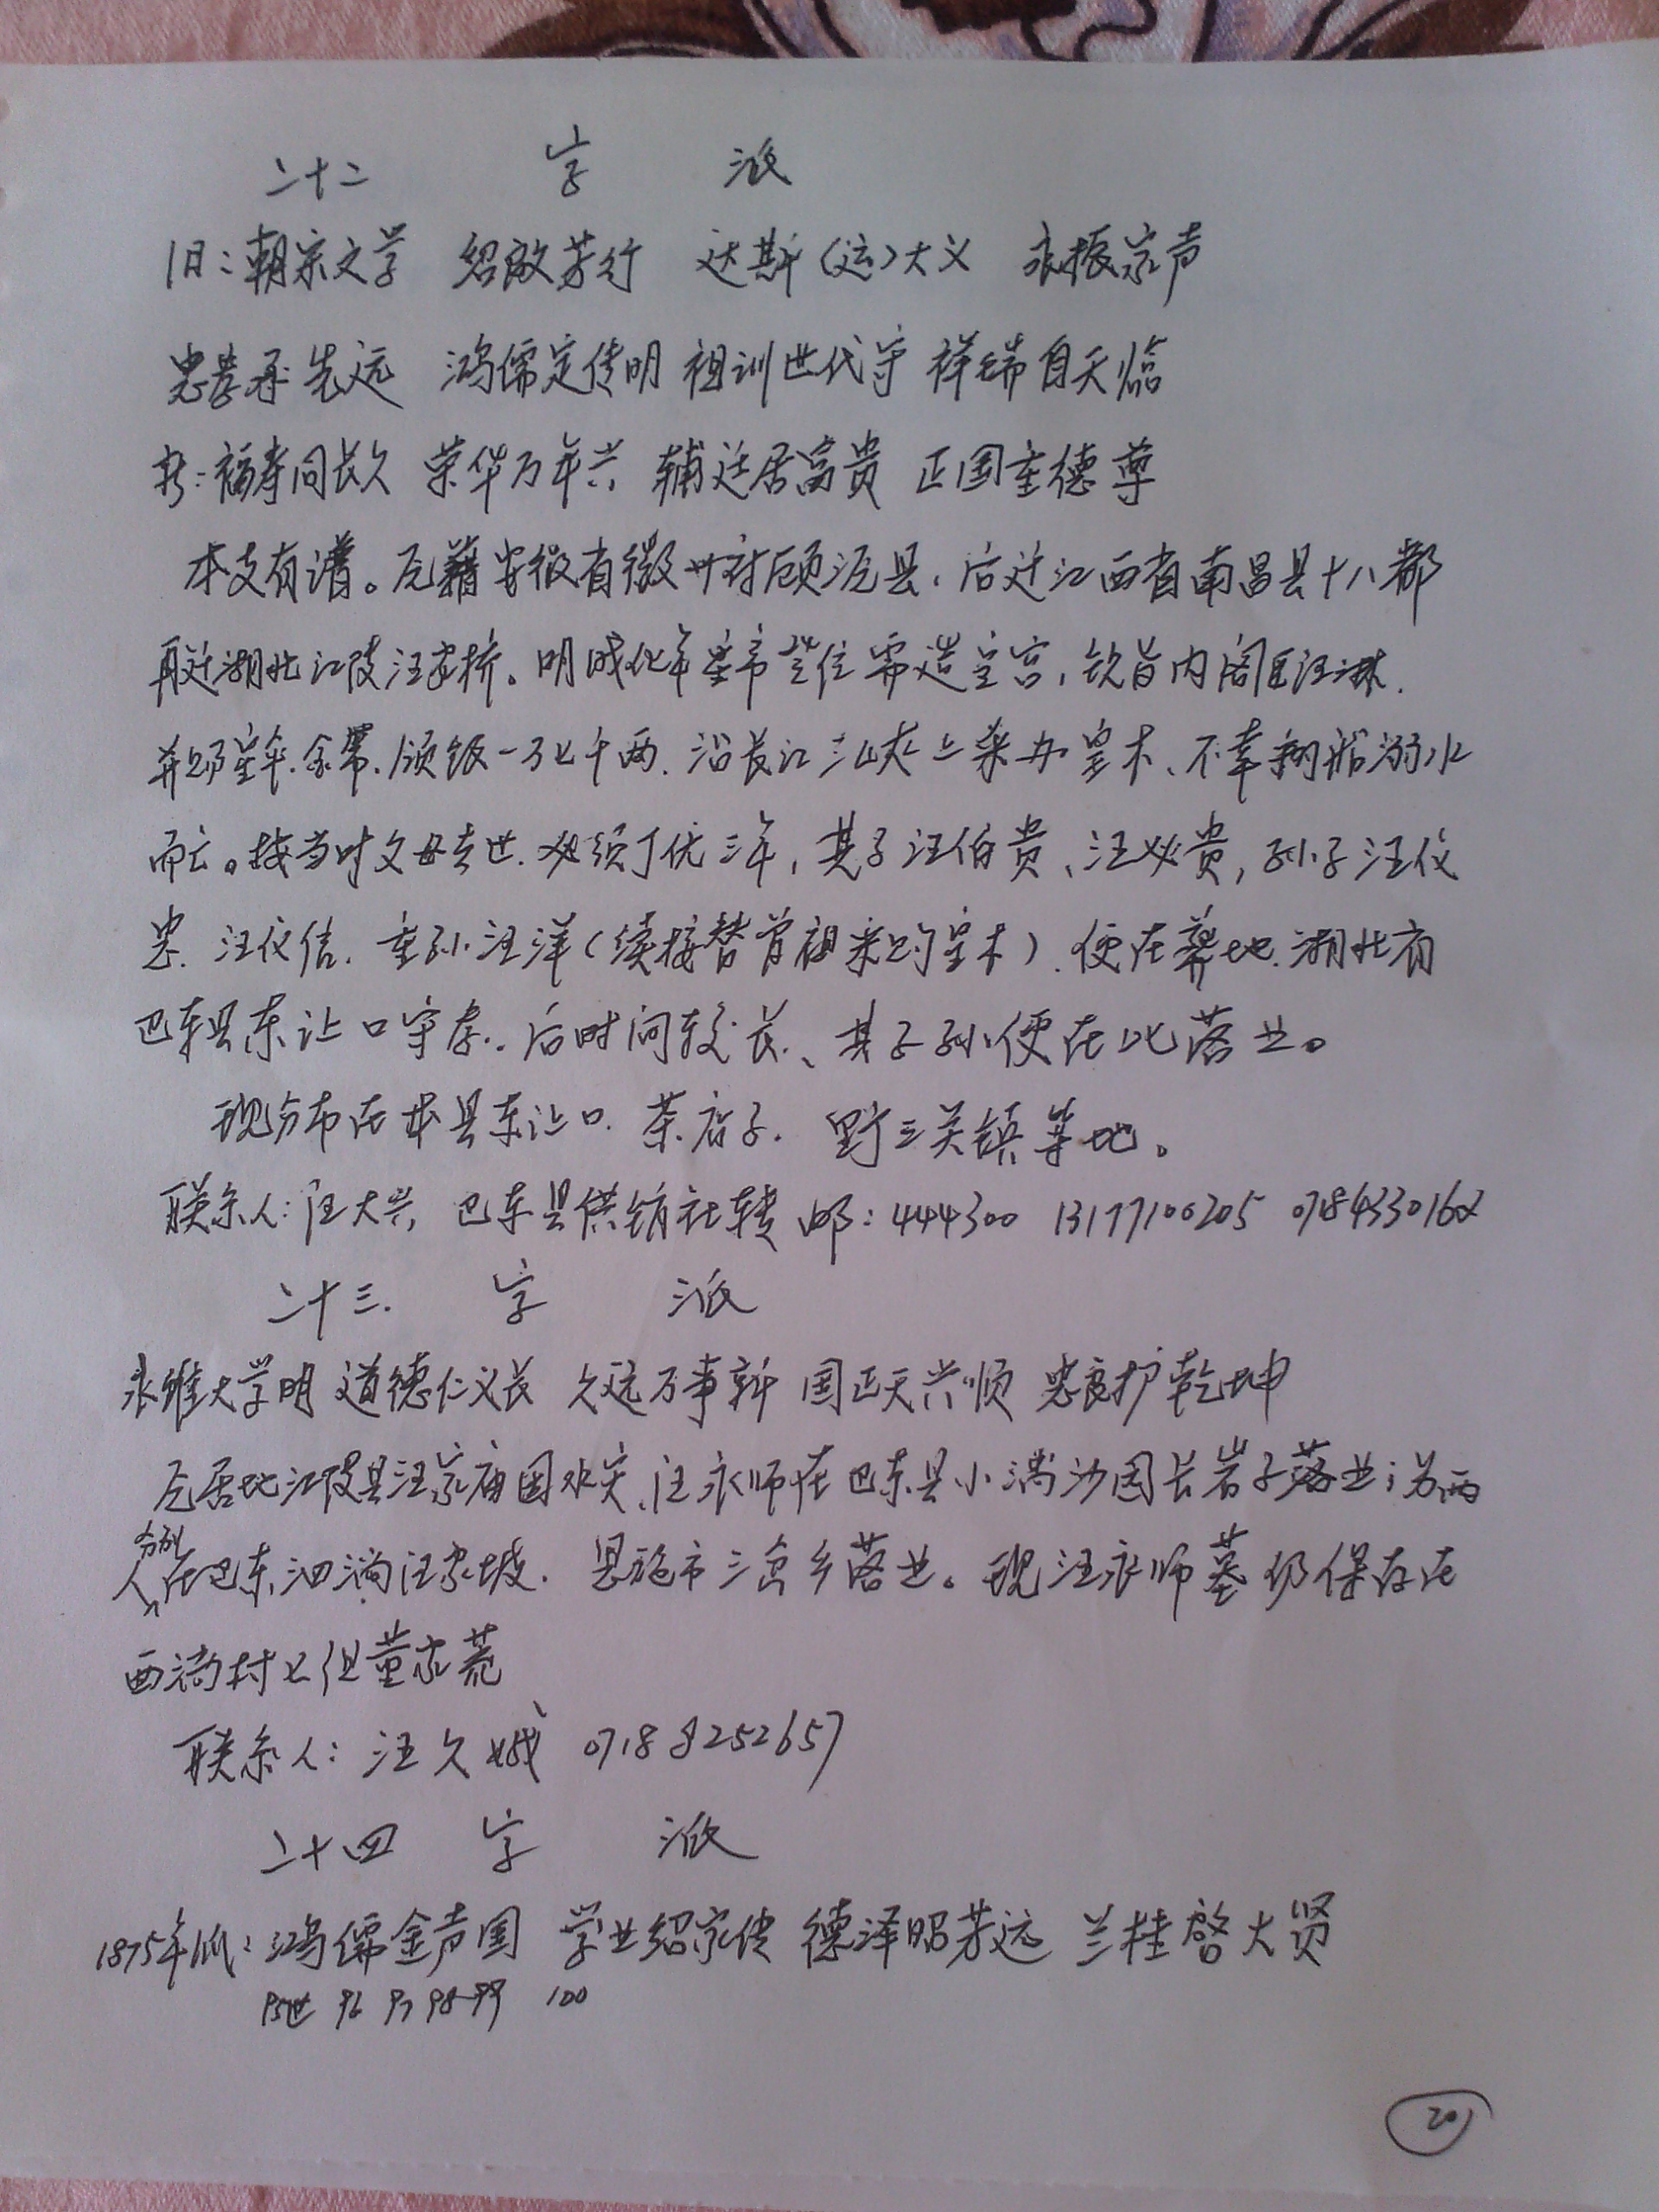 二十二 字 派
旧：朝宗文学 绍啟芳行 达斯（运）大义 永振家声
忠孝承先远 鸿儒定传明 祖训世代守 祥瑞自天临
新：福寿同长久 荣华万年兴 辅廷居富贵 正国重德尊
本支有谱。元籍安徽省徽州府 县，后迁江西省南昌县十八都
再迁湖北江陵汪家桥。明成化年皇帝登位需造皇宫，钦旨内阁 汪淋.
并赐 伞.金 .领饭一万七千两.沿长江三峡上采办皇木、不幸翻船溺水
而亡。按当时父母去世.必须丁优三年，其子汪伯贵、汪必贵，孙子汪仪
忠.汪仪信.重孙汪洋（续接替曾祖采购皇木）.便在葬地.湖北省
巴东县东让口守孝.后时间较长、其子孙便在此落业。
现分布在本县东让口.茶店子.野三关镇等地。
联系人：汪大兴，巴东县供销社转 邮：444300 13177100205 07184330162
二十三. 字 派
永维大学明 道德仁义长 久远万事新 国正天兴顺 忠良护乾坤
元居地江陵县汪家庙因水灾、汪永师在巴东县小满沙园长岩子落业；后两
人分别在巴东泗淌汪家坡.恩施市三岔乡落业。现汪永师墓仍保存在
西 村七组董家荒
联系人：汪久娥 0718 8252657
二十四 字 派
1875年 ：鸿儒金声国 学业绍家传 德泽昭芳远 兰桂啓大贤
95世 96 97 98 99 100
201